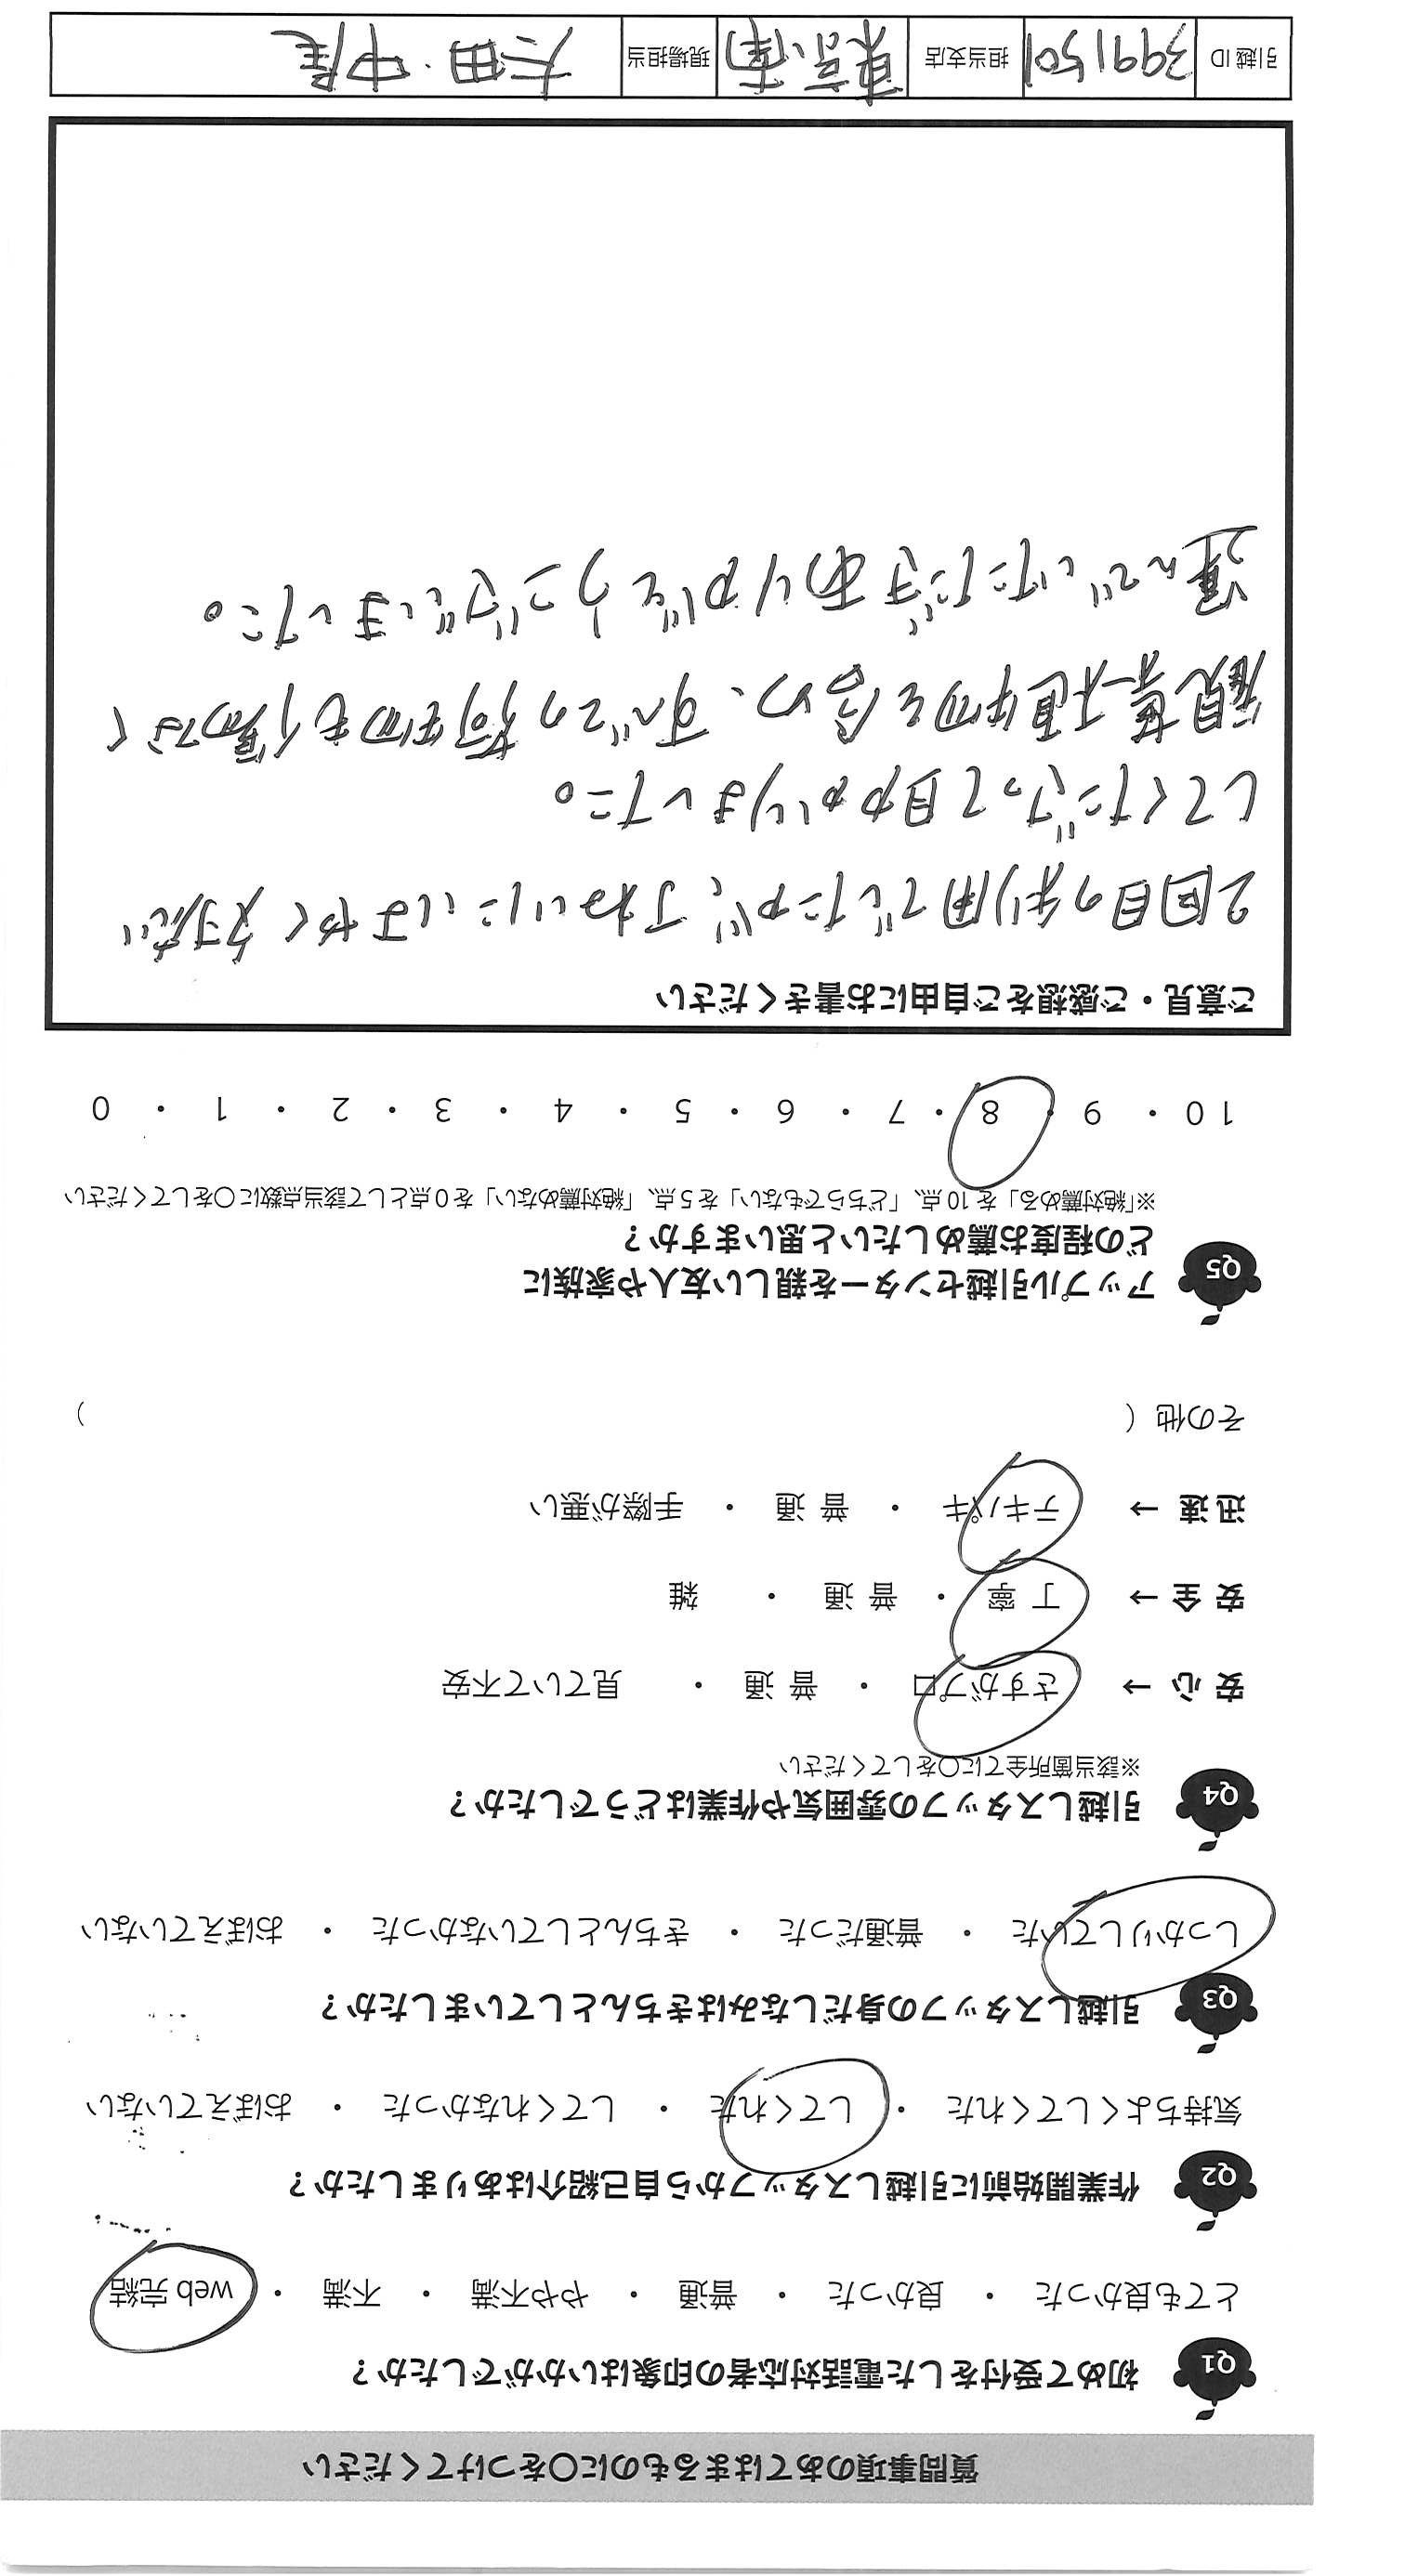 質問事項のあてはまるものに〇をつけてください
Q1 初めて受付をした電話対応者の印象はいかがでしたか？
とても良かった ・ 良かった ・ 普通 ・ やや不満 ・ 不満 ・ web 完結
Q2 作業開始前に引越しスタッフから自己紹介はありましたか？
気持ちよくしてくれた ・ してくれた ・ してくれなかった ・ おぼえていない
Q3 引越しスタッフの身だしなみはきちんとしていましたか？
しっかりしていた ・ 普通だった ・ きちんとしていなかった ・ おぼえていない
Q4 引越しスタッフの雰囲気や作業はどうでしたか？
※該当箇所全てに〇をしてください
安 心 → さすがプロ ・ 普 通 ・ 見ていて不安
安 全 → 丁 寧 ・ 普 通 ・ 雑
迅 速 → テキパキ ・ 普 通 ・ 手際が悪い
その他（ ）
Q5 アップル引越センターを親しい友人や家族に
どの程度お薦めしたいと思いますか？
※「絶対薦める」を 10 点、「どちらでもない」を 5 点、「絶対薦めない」を 0 点として該当点数に〇をしてください
10 ・ 9 ・ 8 ・ 7 ・ 6 ・ 5 ・ 4 ・ 3 ・ 2 ・ 1 ・ 0
ご意見・ご感想をご自由にお書きください
2回目の利用でしたが、ていねいにはやく対応
してくださって助かりました。
観葉植物を含め、すべての荷物も傷なく
運んでいただきありがとうございました。
引越 ID 3991501 担当支店 東京南 現場担当 太田・中尾